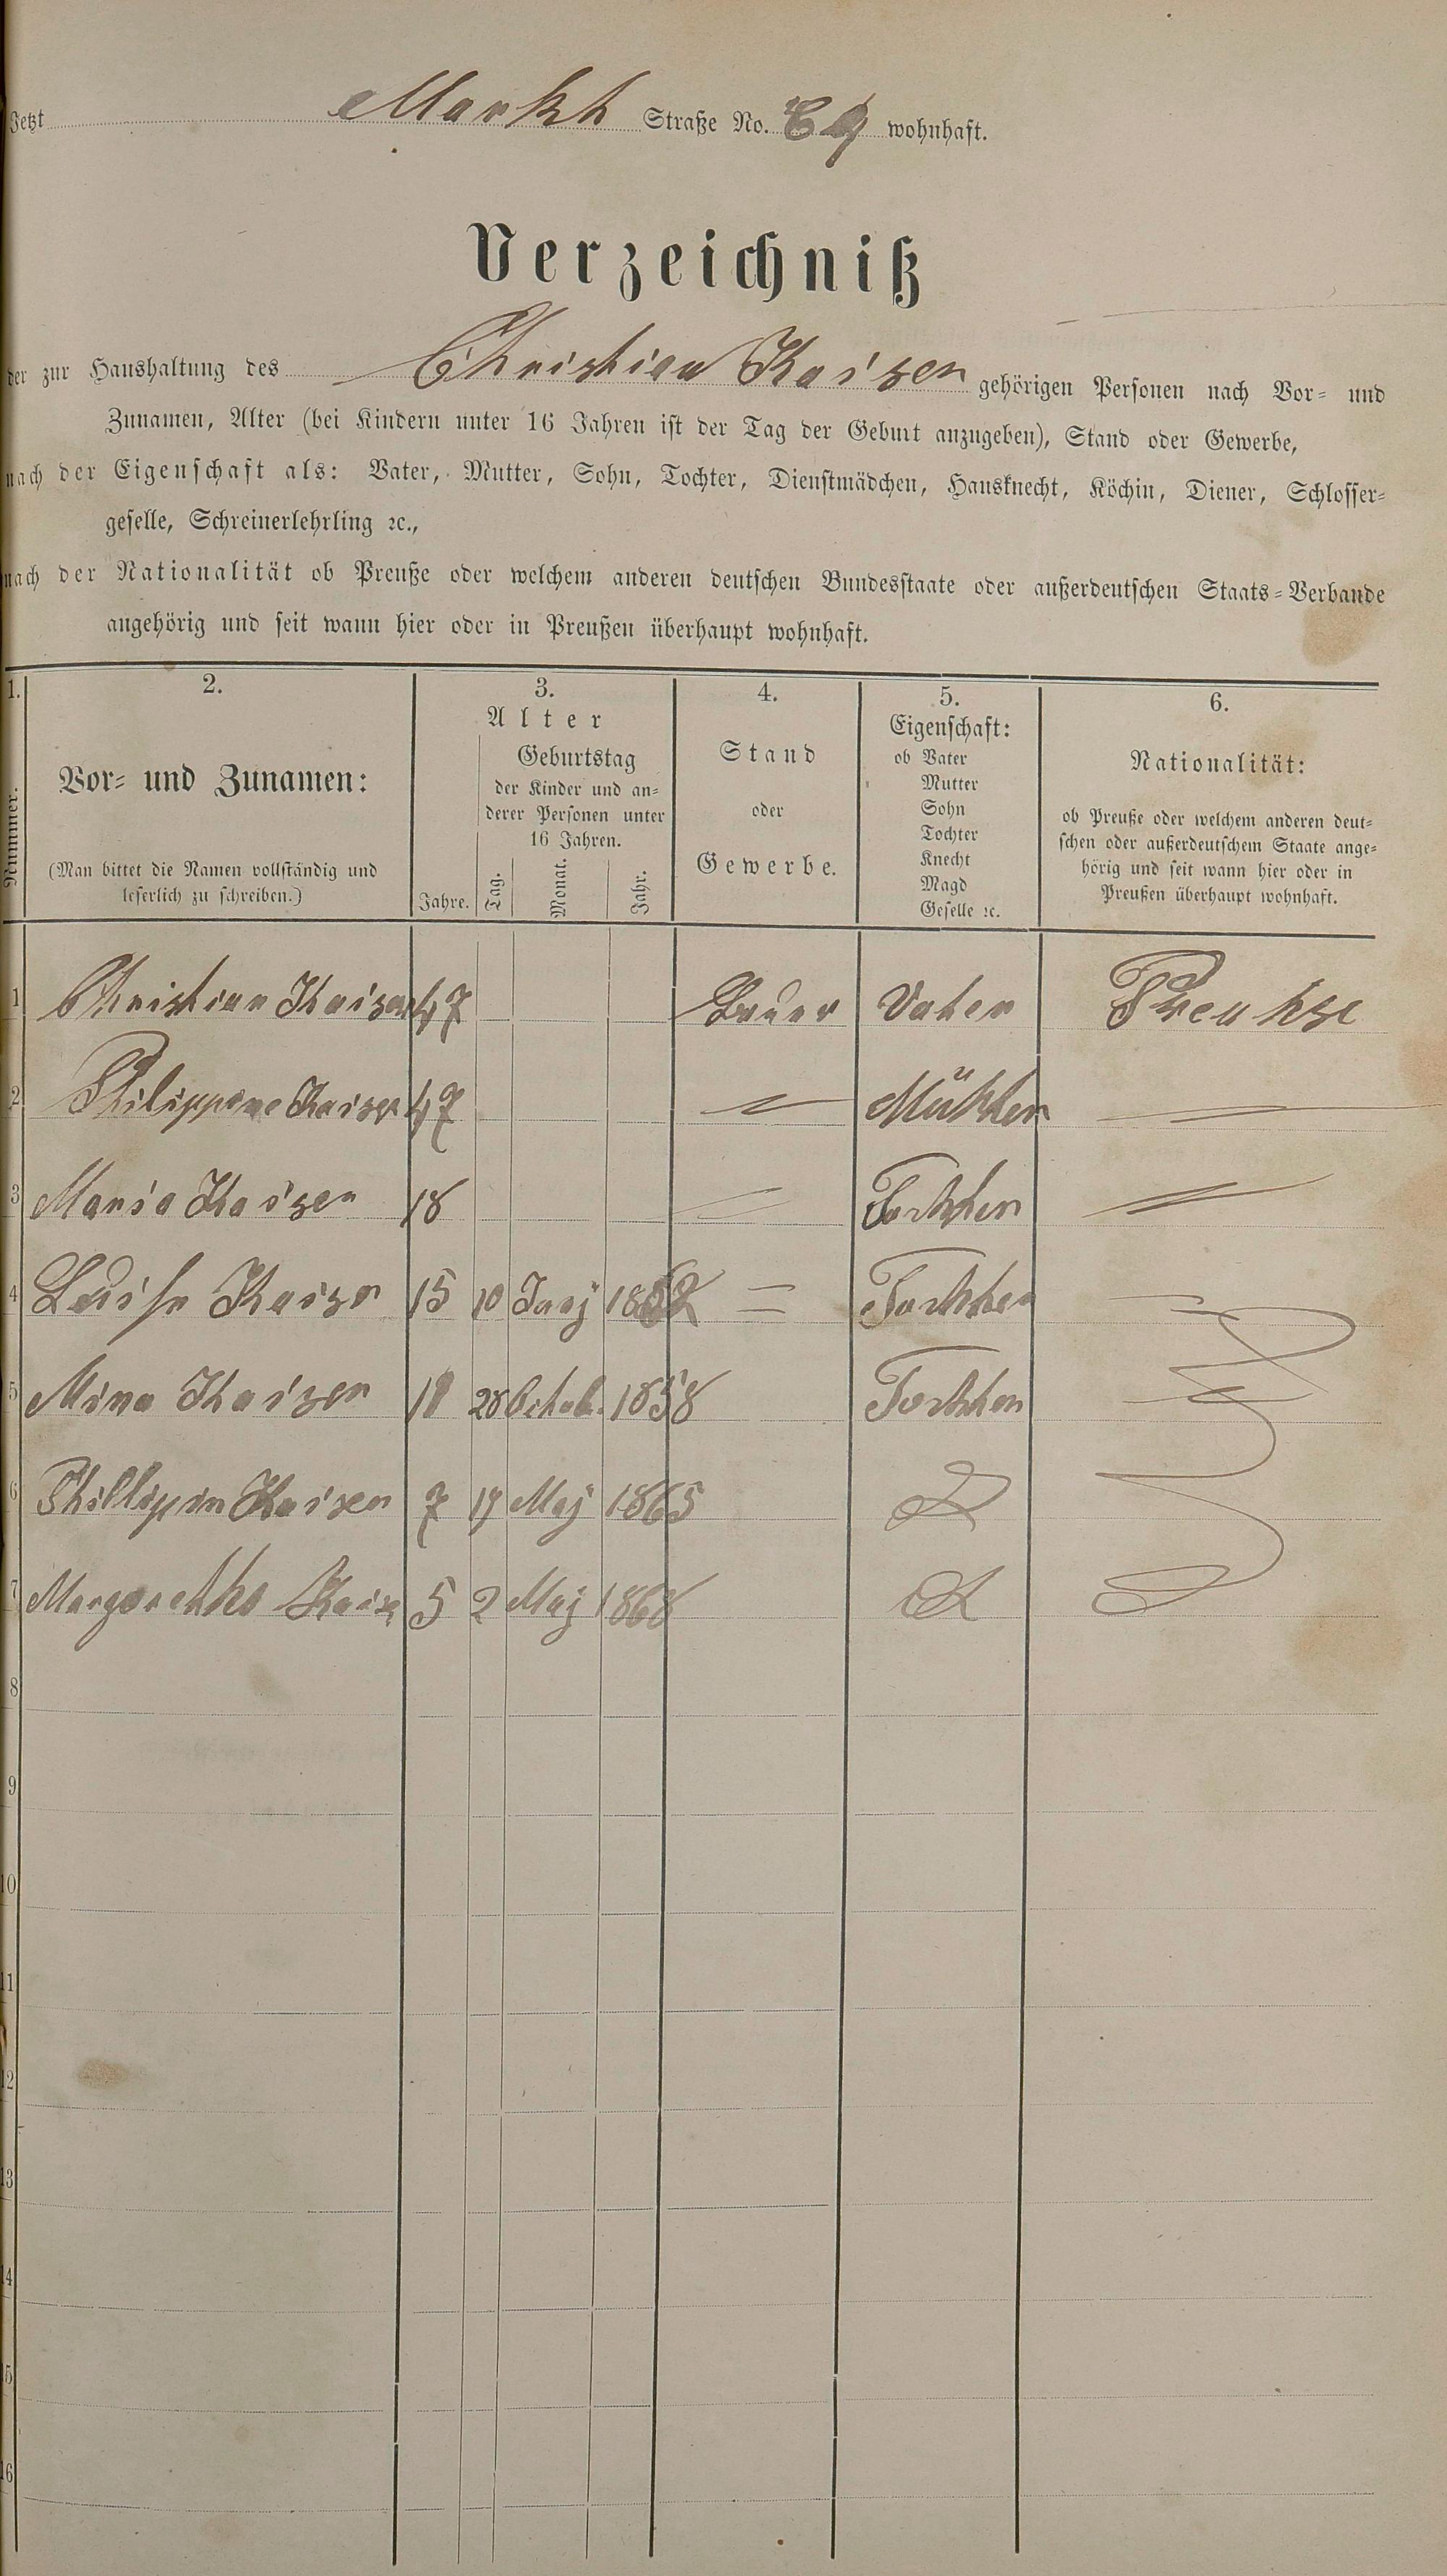 Jetzt Markt Straße No. wohnhaft.
Verzeichniß
der zur Haushaltung des Christian Kaiser gehörigen Personen nach Vor- und
Zunamen, Alter (bei Kindern unter 16 Jahren ist der Tag der Geburt anzugeben), Stand oder Gewerbe,
nach der Eigenschaft als: Vater, Mutter, Sohn, Tochter, Dienstmädchen, Hausknecht, Köchin, Diener, Schlosser-
geselle, Schreinerlehrling ꝛc.,
nach der Nationalität ob Preuße oder welchem anderen deutschen Bundesstaate oder außerdeutschen Staats-Verbande
angehörig und seit wann hier oder in Preußen überhaupt wohnhaft.
1. 2. 3. 4. 5. 6.
Nummer.
Vor- und Zunamen:
(Man bittet die Namen vollständig und
leserlich zu schreiben.)
Alter
Jahre.
Geburtstag
der Kinder und an-
derer Personen unter
16 Jahren.
Tag. Monat. Jahr.
Stand
oder
Gewerbe.
Eigenschaft:
ob Vater
Mutter
Sohn
Tochter
Knecht
Magd
Geselle ꝛc.
Nationalität:
ob Preuße oder welchem anderen deut-
schen oder außerdeutschem Staate ange-
hörig und seit wann hier oder in
Preußen überhaupt wohnhaft.
1 Christian Kaiser 47 Bauer Vater Preuhse
2 Philippine Kaiser 47 Mutter
3 Maria Kaiser 18 Tochter
4 Luise Kaiser 15 10 Juny Tochter
5 Mina Kaiser 28 Octob. 1858 Tochter
6 Phillippin Kaiser 7 19 May 1865
7 Margarethe 5 2 May 1868
8
9
10
11
12
13
14
15
16